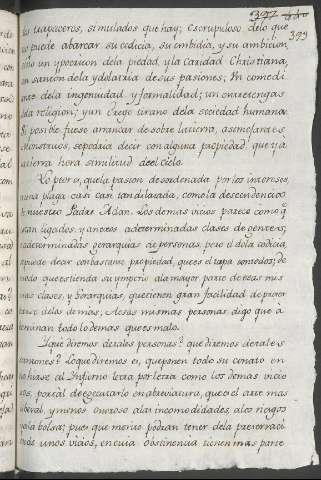 397
399
los usapaceros, simulados que hay; Escrupuloso de lo que
no puede abarcar su codicia, su embidia, y su ambicion,
sino un ypocriton dela piedad, y la Caridad Christiana,
un santon dela ydolatria de sus pasiones; Un comedi
ante dela ingenuidad y formalidad; un
dela religion; y un Erege tirano dela sociedad humana.
Si posible fuese arrancar de sobre la tierra, a semejantes
Monstruos, se podria decir con alguna propiedad que ya
la tierra hera similitud de el cielo.
Lo peor es, que la pasion desordenada por los intereses,
es una plaga casi casi tan dilatada, como la descendencia
de nuestro Padre Adan. Los demas vicios parece como q.e
estan ligados, y anexos adeterminadas clases de generos;
y adeterminadas gerarquias de personas. pero el dela codicia,
se puede decir con bastante propiedad, que es el tapa con todos; de
modo que estienda su ymperio ala mayor parte de esas mis
mas clases, y Gerarquias, que tienen gran facilidad de preser
varse delos demas. A esas mismas personas digo que a
dominan todo lo demas que es malo.
Y que diremos de tales personas? que diremos de tales
comunes? Lo que diremos es, que ponen todo su conato en
no hirse al Infierno letra por letra como los demas vicio
sos, por sal de egecutarlo en abreviatura, que es el arte mas
liberal, y menos oneroso alas incomodidades, alos riesgos
y ala bolsa; pues que merito podran tener dela preservaci
on de unos vicios, en cuia abstinencia tienen mas parte